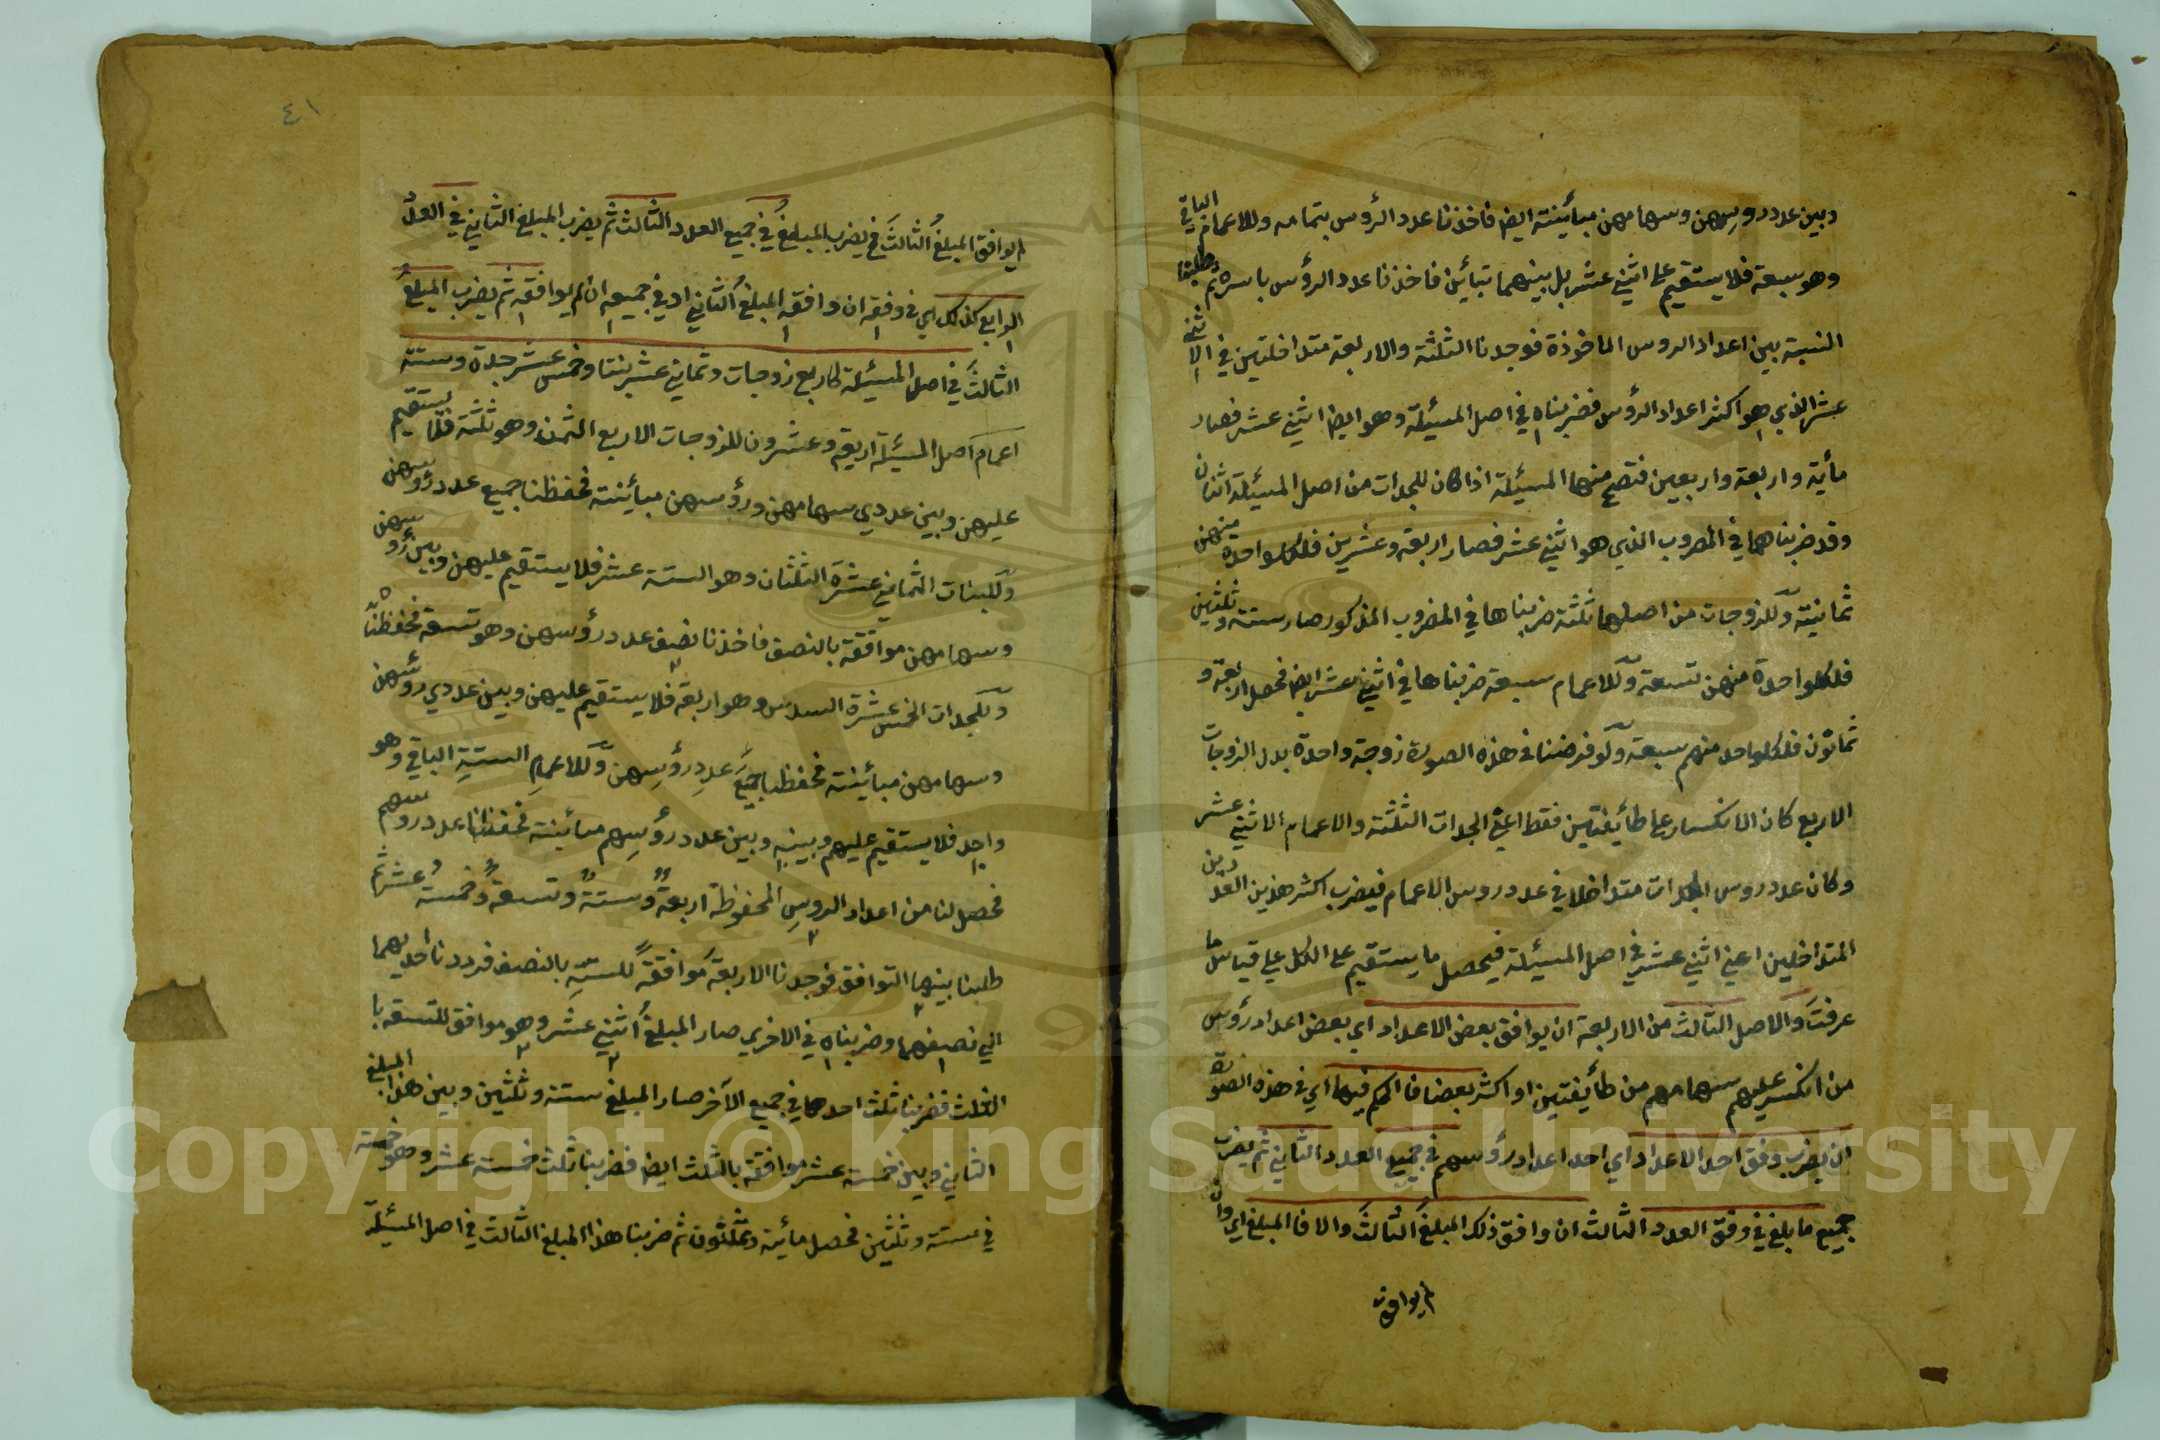 وبين عدد روسهن وسهامهن مبائنة ايض فاخذنا عدد الرؤس بتمامه وللاعمام الباقي
وهو سبعة فلا يستقيم على اثني عشر بل بينهما تباين فاخذنا عدد الرؤس باسره ثم طلبنا
النسبة بين اعداد الروس الماخوذة فوجدنا الثلثة والاربعة متداخلتين في الاثني
عشر الذي هو اكثر اعداد الرؤس فضربناه في اصل المسئلة وهو ايضا اثني عشر فصار
مأية واربعة واربعين فتصح منها المسئلة اذا كان للجدات من اصل المسئلة اثنان
وقد ضربناهما في المضروب الذي هو اثني عشر فصار اربعة وعشرين فلكل واحدة منهن
ثمانية وللزوجات من اصلها ثلثة ضربناها في المضروب المذكور صار ستة وثلثين
فلكل واحدة منهن تسعة وللاعمام سبعة ضربناها في اثني عشر ايض فحصل اربعة و
ثمانون فلكل واحد منهم سبعة ولو فرضنا في هذه الصورة زوجة واحدة بدل الزوجات
الاربع كان الانكسار على طائفتين فقط اعني الجدات الثلثة والاعمام الاثني عشر
وكان عدد روس الجدات متداخلا في عدد روس الاعمام فيضرب اكثر هذين العددين
المتداخلين اعني اثني عشر في اصل المسئلة فيحصل ما يستقيم على الكل على قياس ما
عرفت والاصل الثالث من الاربعة ان يوافق بعض الاعداد اي بعض اعداد رؤس
من انكسر عليهم سهامهم من طائفتين او اكثر بعضا فالحكم فيها اي في هذه الصورة
ان يضرب وفق احد الاعداد اي احد اعداد رؤسهم في جميع العدد الثاني ثم يضرب
جميع ما بلغ في وفق العدد الثالث ان وافق ذلك المبلغ الثالث والا فالمبلغ اي وان
لم يوافق
٤١
لم يوافق المبلغ الثالث فيضرب المبلغ في جميع العدد الثالث ثم يضرب المبلغ الثاني في العدد
الرابع كذلك اي في وفقه ان وافقه المبلغ الثاني او في جميعه ان لم يوافقه ثم يضرب المبلغ
الثالث في اصل المسئلة كاربع زوجات وثماني عشر بنتا وخمس عشر جدة وستة
اعمام اصل المسئلة اربعة وعشرون للزوجات الاربع الثمن وهو ثلثة فلا يستقيم
عليهن وبين عددي سهامهن ورؤسهن مبائنة فحفظنا جميع عدد رؤسهن
وللبنات الثماني عشرة الثلثان وهو الستة عشر فلا يستقيم عليهن وبين رؤسهن
وسهامهن موافقة بالنصف فاخذنا نصف عدد رؤسهن وهو تسعة فحفظناه
وللجدات الخمس عشرة السدس وهو اربعة فلا يستقيم عليهن وبين عددي روسهن
وسهامهن مبائنة فحفظنا جميع عدد رؤسهن وللاعمام الستة الباقي وهو
واحد فلا يستقيم عليهم وبينه وبين عدد رؤسهم مبائنة فحفظنا عدد روسهم
فحصل لنا من اعداد الروس المحفوظة اربعة وستة وتسعة وخمسة عشر ثم
طلبنا بينها التوافق فوجدنا الاربعة موافقة للستة بالنصف فرددنا احديهما
الي نصفها وضربناه في الاخري صار المبلغ اثني عشر وهو موافق للتسعة با
الثلث فضربنا ثلث احدهما في جميع الآخر صار المبلغ ستة وثلثين وبين هذا المبلغ
الثاني وبين خمسة عشر موافقة بالثلث ايض فضربنا ثلث خمسة عشر وهو خمسة
في ستة وثلثين فحصل مائة وثمانون ثم ضربنا هذا المبلغ الثالث في اصل المسئلة
Copyright © King Saud University
1957